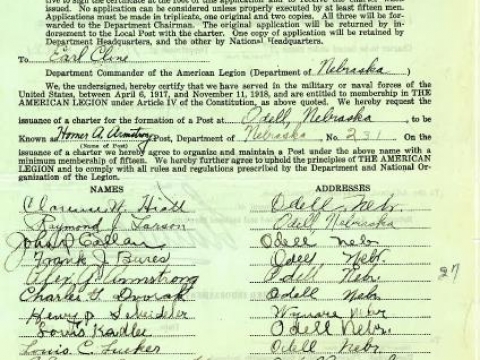 tive to sign the certificate at the foot of this application and to receive the charter when
issued. No application can be considered unless properly executed by at least fifteen men.
Applications must be made in triplicate, one original and two copies. All three will be for-
warded to the Department Chairman. The original application will be returned by in-
dorsement to the Local Post with the charter. One copy of application will be retained by
Department Headquarters, and the other by National Headquarters.
To Earl Cline
Department Commander of the American Legion (Department of Nebraska)
We, the undersigned, hereby certify that we have served in the military or naval forces of the
United States, between April 6, 1917, and November 11, 1918, and are entitled to membership in THE
AMERICAN LEGION under Article IV of the Constitution, as above quoted. We hereby request the
issuance of a charter for the formation of a Post at Odell, Nebraska, to be
Known as Homer A. Armstrong Post, Department of Nebraska No. 231 On the
(Name of Post)
issuance of a charter we hereby agree to organize and maintain a Post under the above name with a
minimum membership of fifteen. We hereby further agree to uphold the principles of THE AMERICAN
LEGION and to comply with all rules and regulations prescribed by the Department and National Or-
ganization of the Legion.
NAMES ADDRESSES
Clarence H. Hiatt Odell Nebr.
Raymond J Larson Odell, Nebraska
John P Callan Odell Nebr
Frank J. Bures Odell, Nebr.
Armstrong Odell Nebr. 27
Charles F. Dvorak Odell Nebr
Henry Wymore Nebr
Louis Kadlec Odell Nebr.
Louis C. Odell Nebr